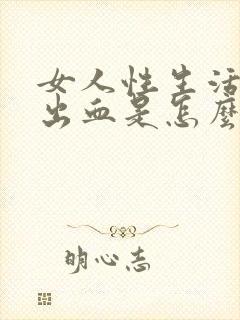 女人性生活
出血是怎麼
明心志